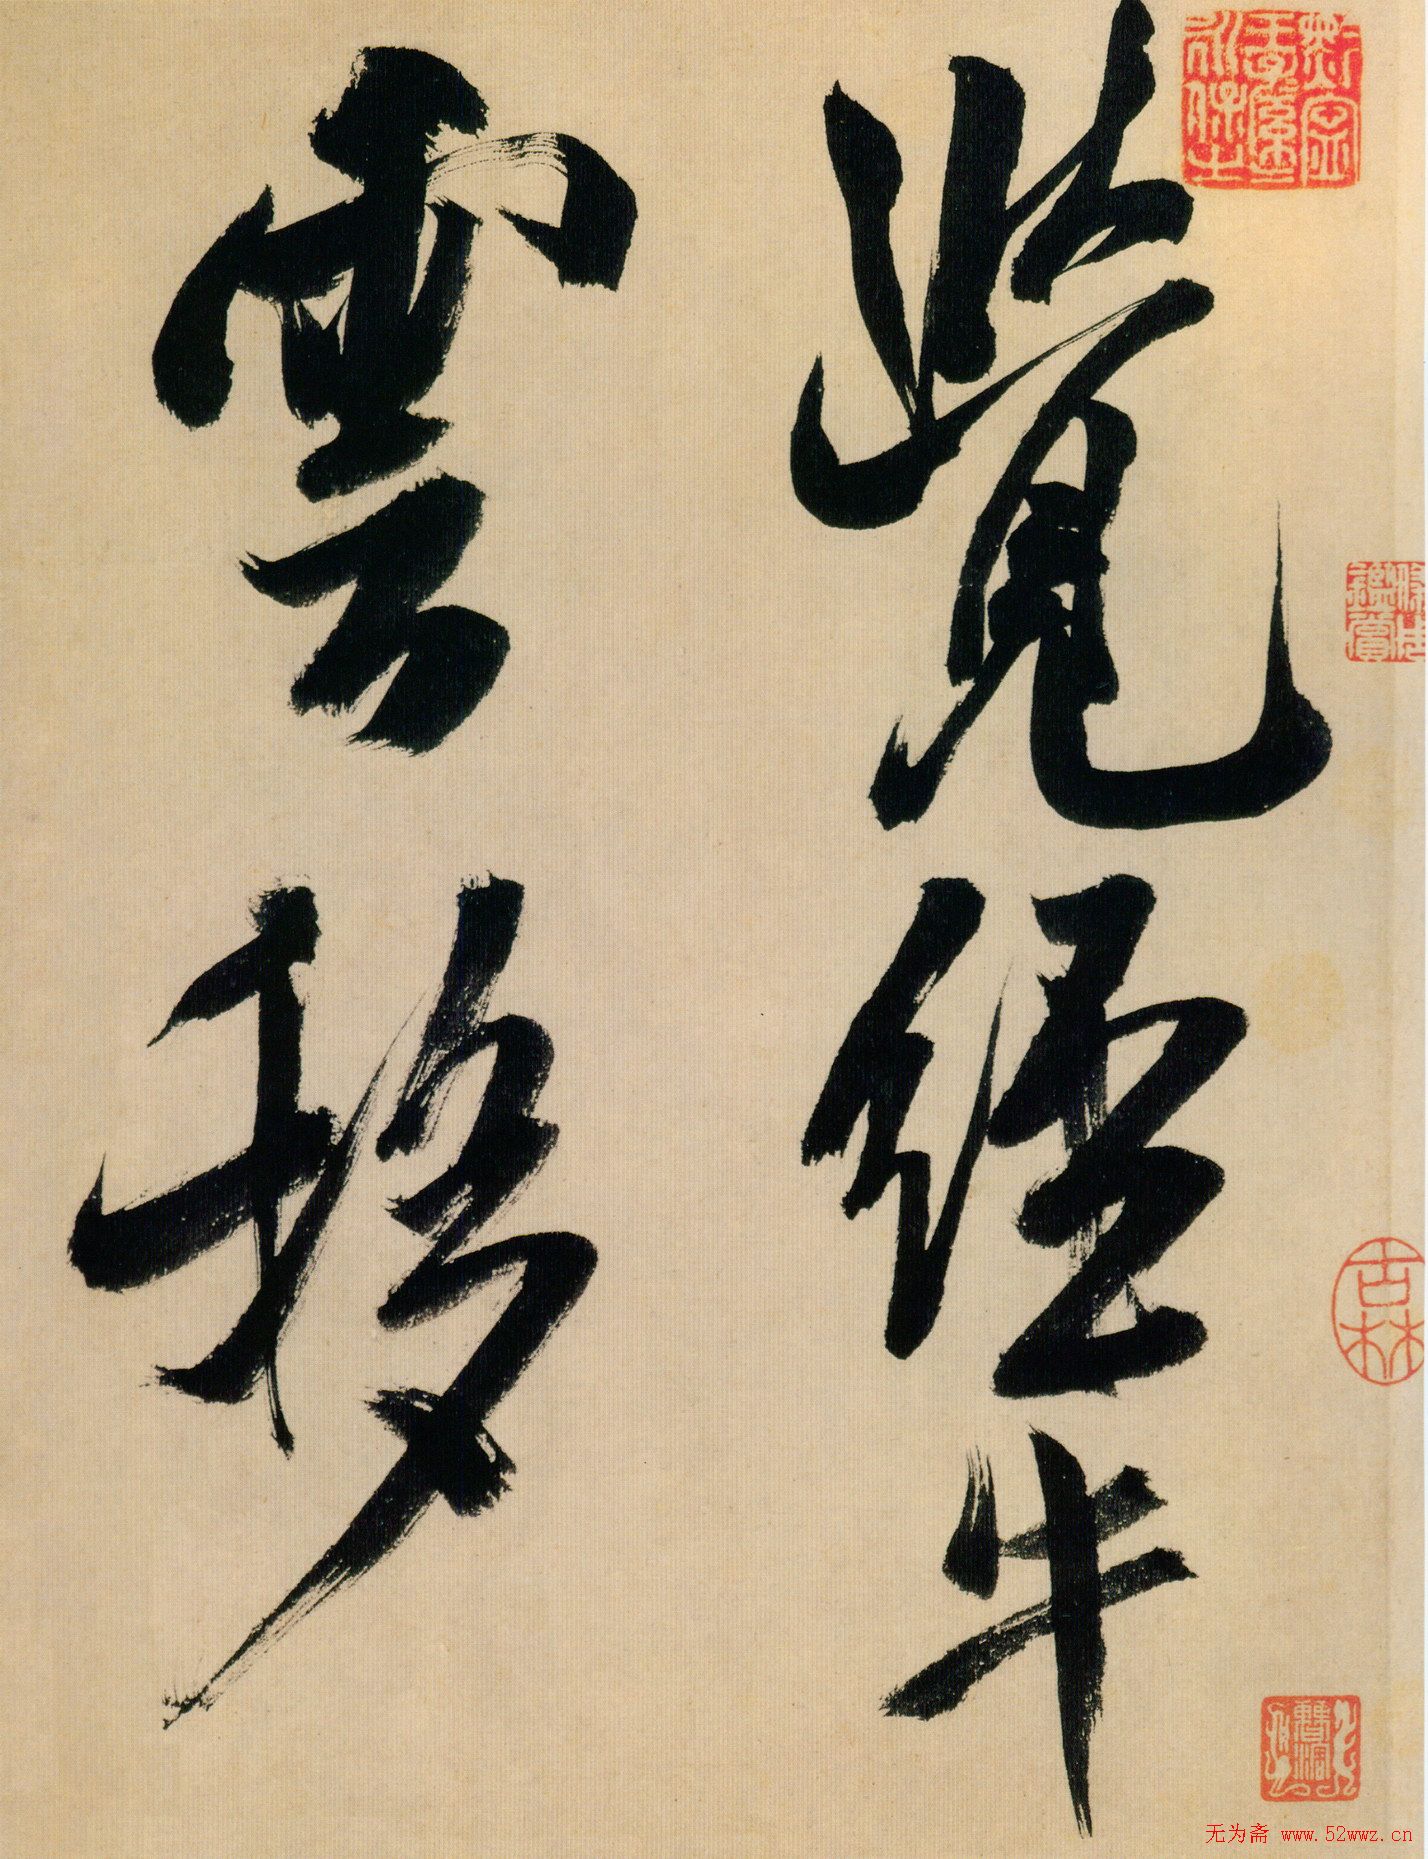 覽經半
雲移
古林
无为斋 www.52wwz.cn